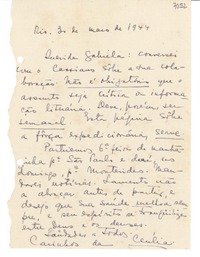 Rio, 30 de maio de 1944
Querida Gabriela: conversei
com o Cassiano sôbre a sua cola-
boração. Não é obrigatório que o
assunto seja crítica ou informa-
ção literária. Deve, porém ser
semanal. Esta página sôbre
a fôrça expedicionária, serve.
Partiremos 6ª feira de manhã-
zinha pª São Paulo e daí, no
domingo, pª Montevideo. Man-
daremos notícias. Lamento não
a abraçar antes de partir, e
desejo que sua saúde melhore sem-
pre, e seu espírito se tranquilize
entre Deus e os deuses.
Saudades a todos.
Carinhos da Cecília